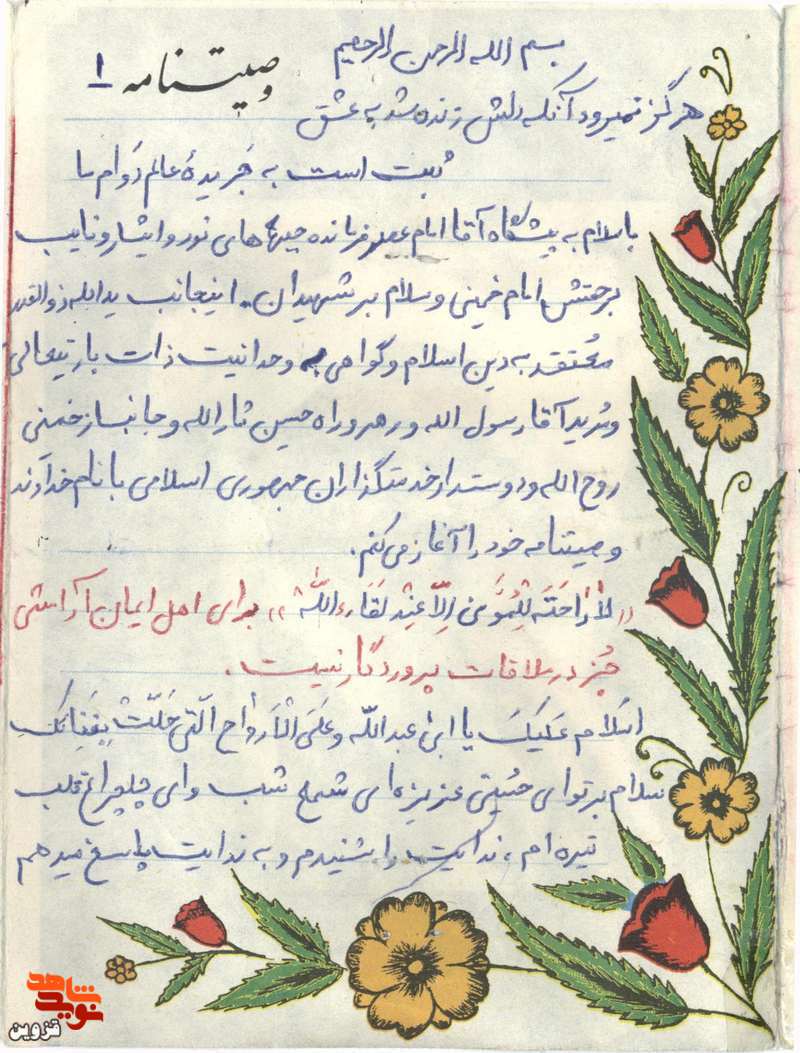 بسم الله الرحمن الرحیم
وصیتنامه ۱
هرگز نمیرود آنکه دلش زنده شد به عشق
ثبت است به جَریدهٔ عالم دَوام ما
باسلام به پیشگاه آقا امام عصر فرمانده جبهه‌های نور و ایثار و نایب
برحقش امام خمینی و سلام بر شهیدان. اینجانب یدالله ذوالقدر
معُتقد به دین اسلام و گواهی به وحدانیت ذات باریتعالی
و مُرید آقا رسول الله و رهرو راه حسین ثارالله و جانباز خمینی
روح الله و دوستدار خدمتگذاران جمهوری اسلامی با نام خداوند
وصیتنامه خود را آغاز می‌کنم.
«لاٰراحَتَه لِلْمُؤمِن اِلاّ عِنْدَ لَقٰاءِ اللّٰه» برای اهل ایمان آرامشی
جُز در ملاقات پروردگار نیست.
اسَلام عَلَیکَ یا ابیٰ عبدالله وَ عَلَی الْاَرواٰح الّتی حَلّتْ بِفَنٰائکِ
سلام بر تو ای حُسِین عزیز، ای شمع شب و ای چلچراغ قلب
تیره ام، ندایت را شنیدم و به ندایت پاسخ میدهم
نوید شاهد
قزوین